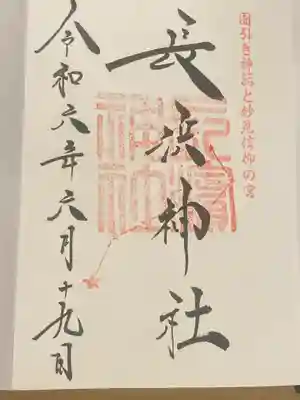 国引き神話と妙見信仰の宮
長浜神社
令和六年六月十九日